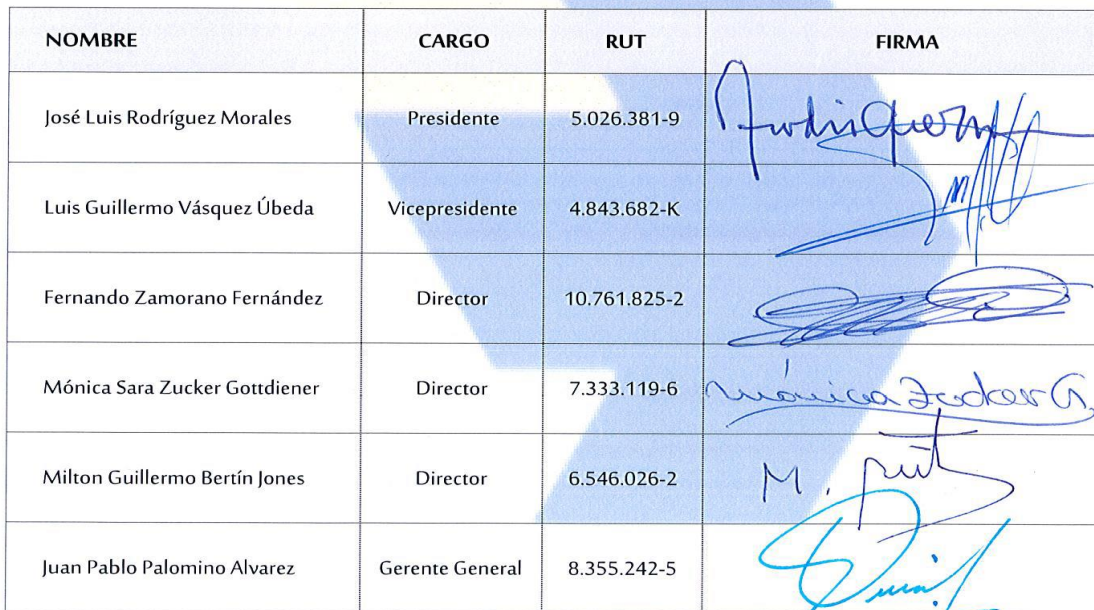 NOMBRE CARGO RUT FIRMA
José Luis Rodríguez Morales Presidente 5.026.381-9
Luis Guillermo Vásquez Úbeda Vicepresidente 4.843.682-K
Fernando Zamorano Fernández Director 10.761.825-2
Mónica Sara Zucker Gottdiener Director 7.333.119-6 Mónica Zucker G.
Milton Guillermo Bertín Jones Director 6.546.026-2 M.
Juan Pablo Palomino Alvarez Gerente General 8.355.242-5